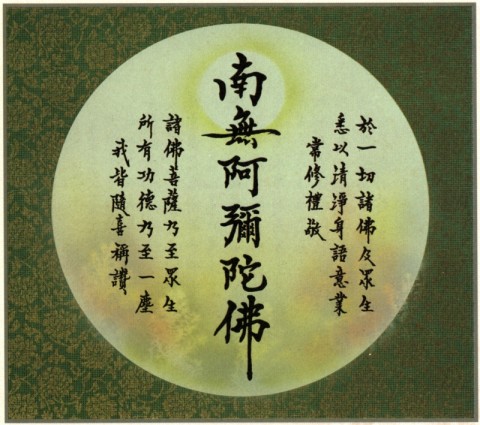 於一切諸佛及眾生
悉以清淨身語意業
常修禮敬
南無阿彌陀佛
諸佛菩薩乃至眾生
所有功德乃至一塵
我皆隨喜稱讚